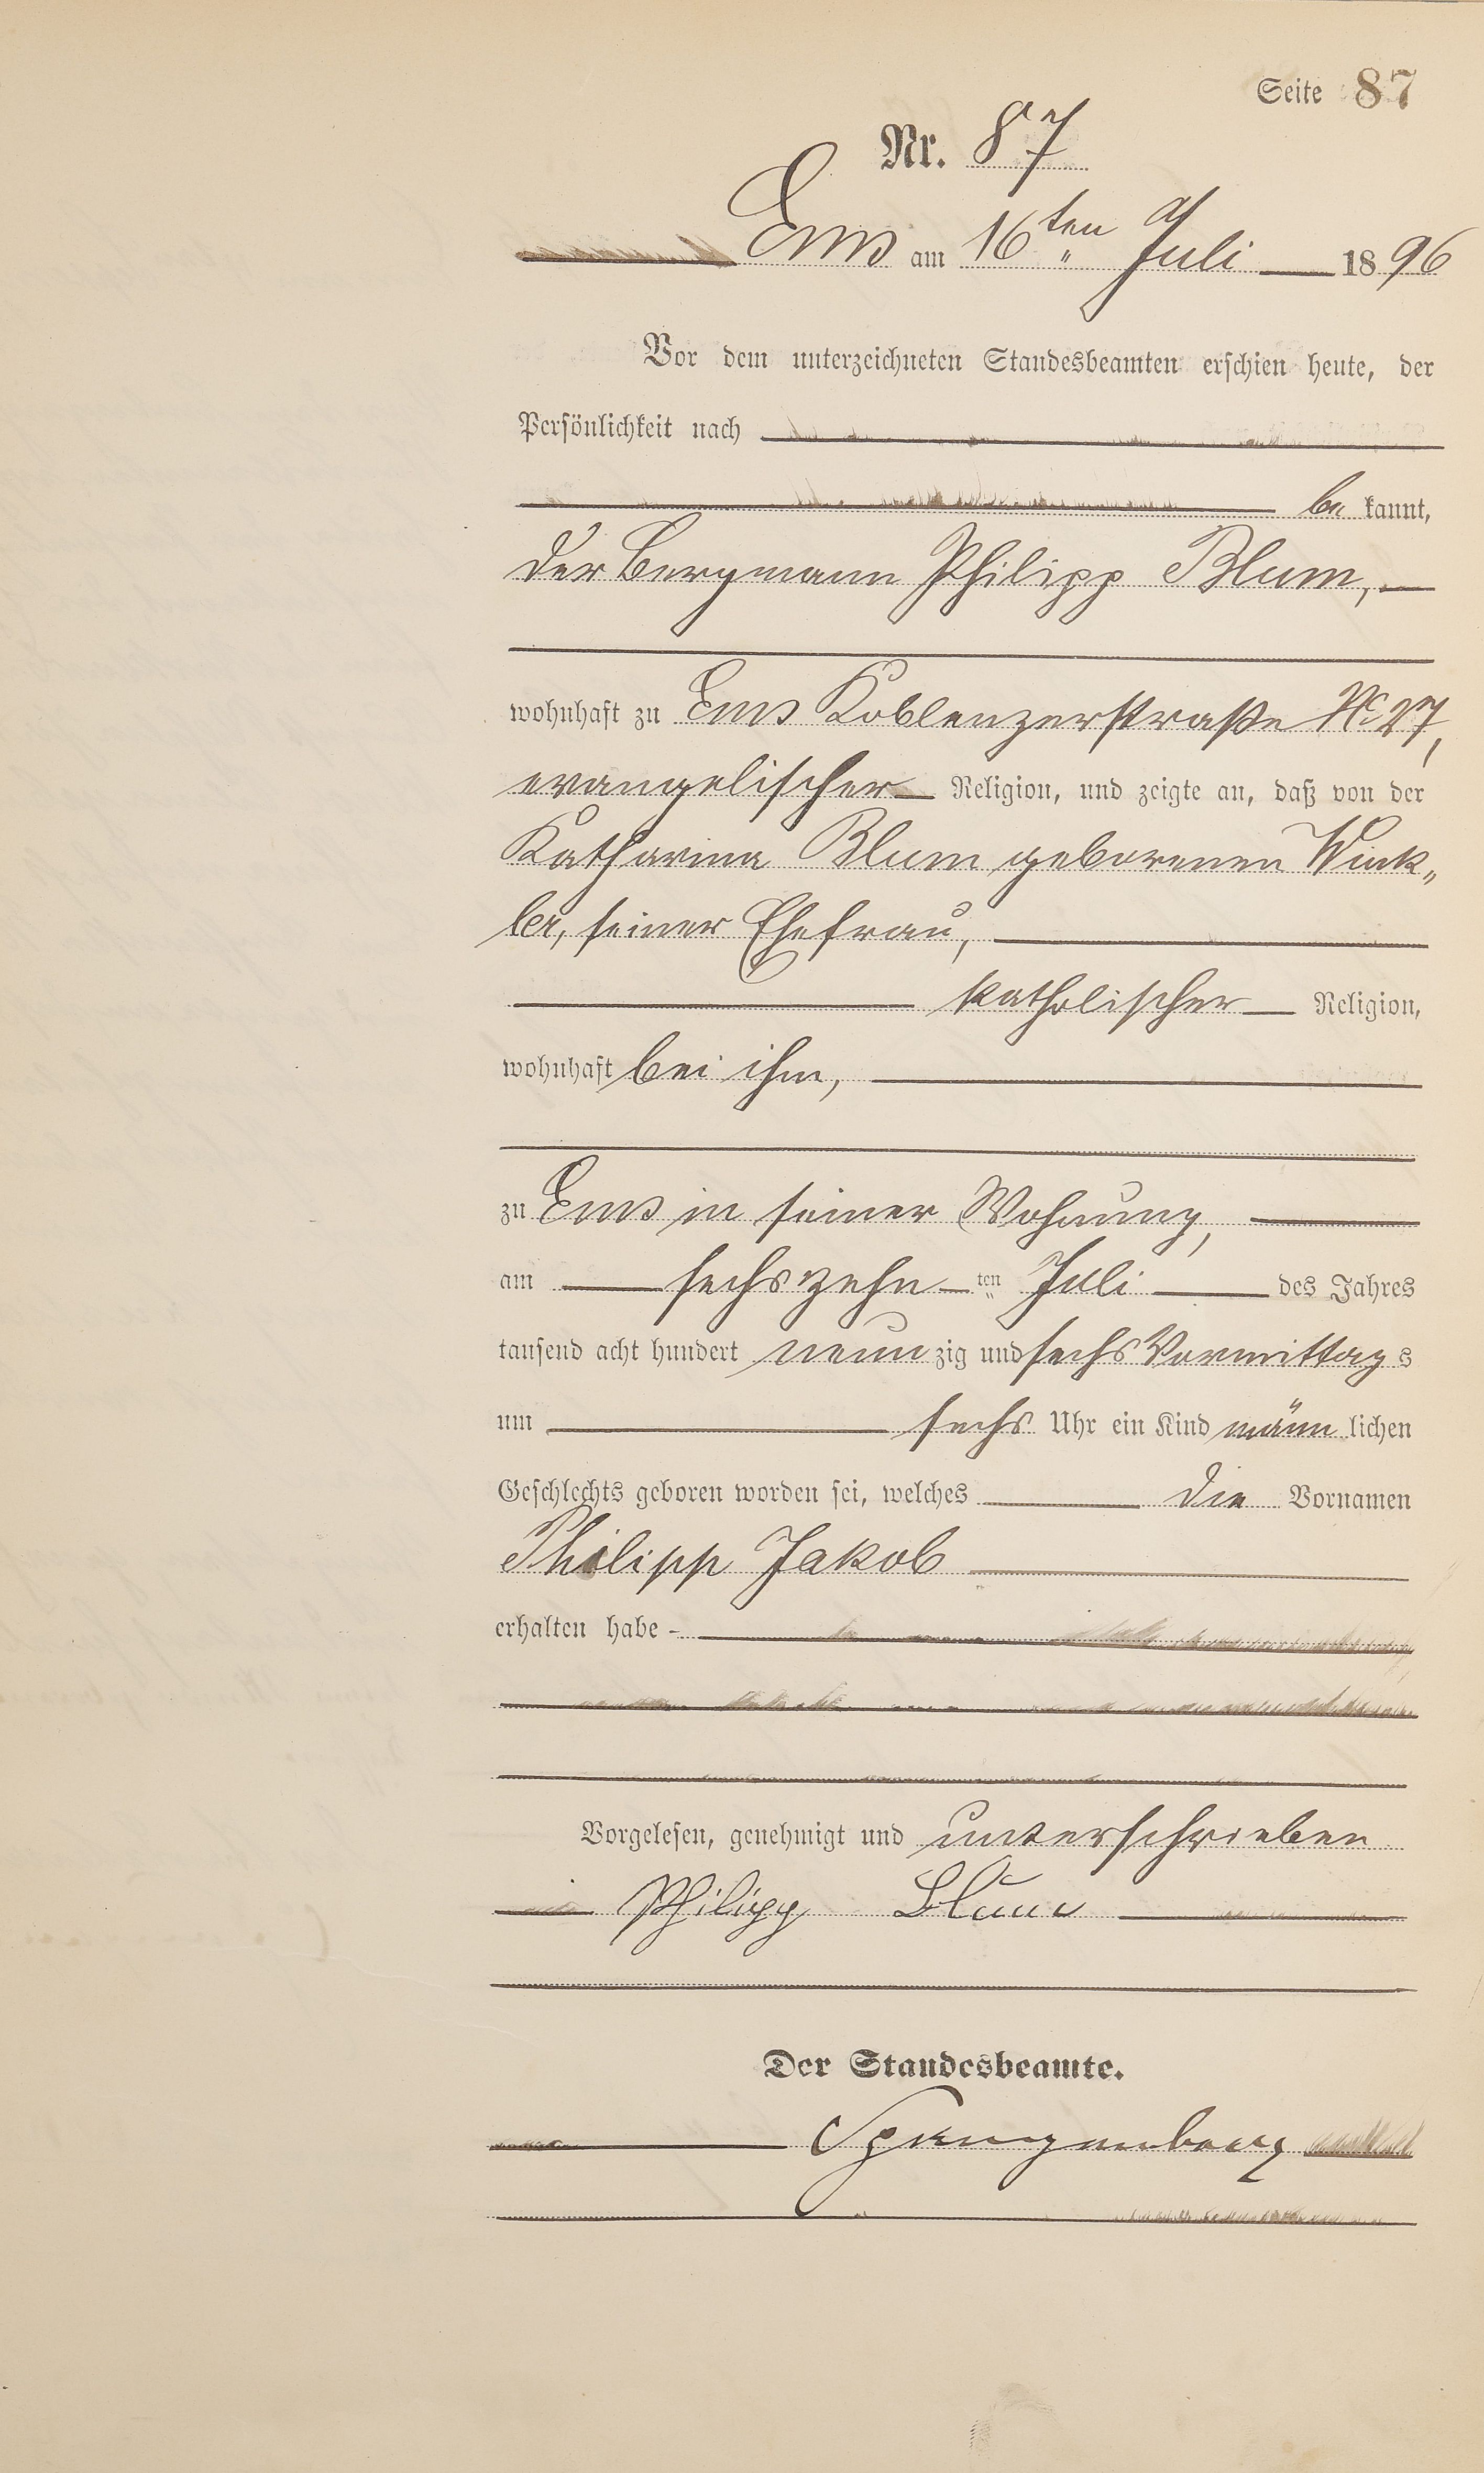 Seite 87
Nr. 87
Ems am 16ten Juli 1896
Vor dem unterzeichneten Standesbeamten erschien heute, der
Persönlichkeit nach
be kannt,
der Bergmann Philipp Blum,
wohnhaft zu Ems Koblenzerstraße No 27,
evangelischer Religion, und zeigte an, daß von der
Katharina Blum geborenen Wink„
ler, seiner Ehefrau,
katholischer Religion,
wohnhaft bei ihm,
zu Ems in seiner Wohnung,
am sechszehn ten Juli des Jahres
tausend acht hundert neun zig und sechs Vormittag s
um sechs Uhr ein Kind männ lichen
Geschlechts geboren worden sei, welches die Vornamen
Philipp Jakob
erhalten habe
Vorgelesen, genehmigt und unterschrieben
Philipp Blum
Der Standesbeamte.
Spangenberg